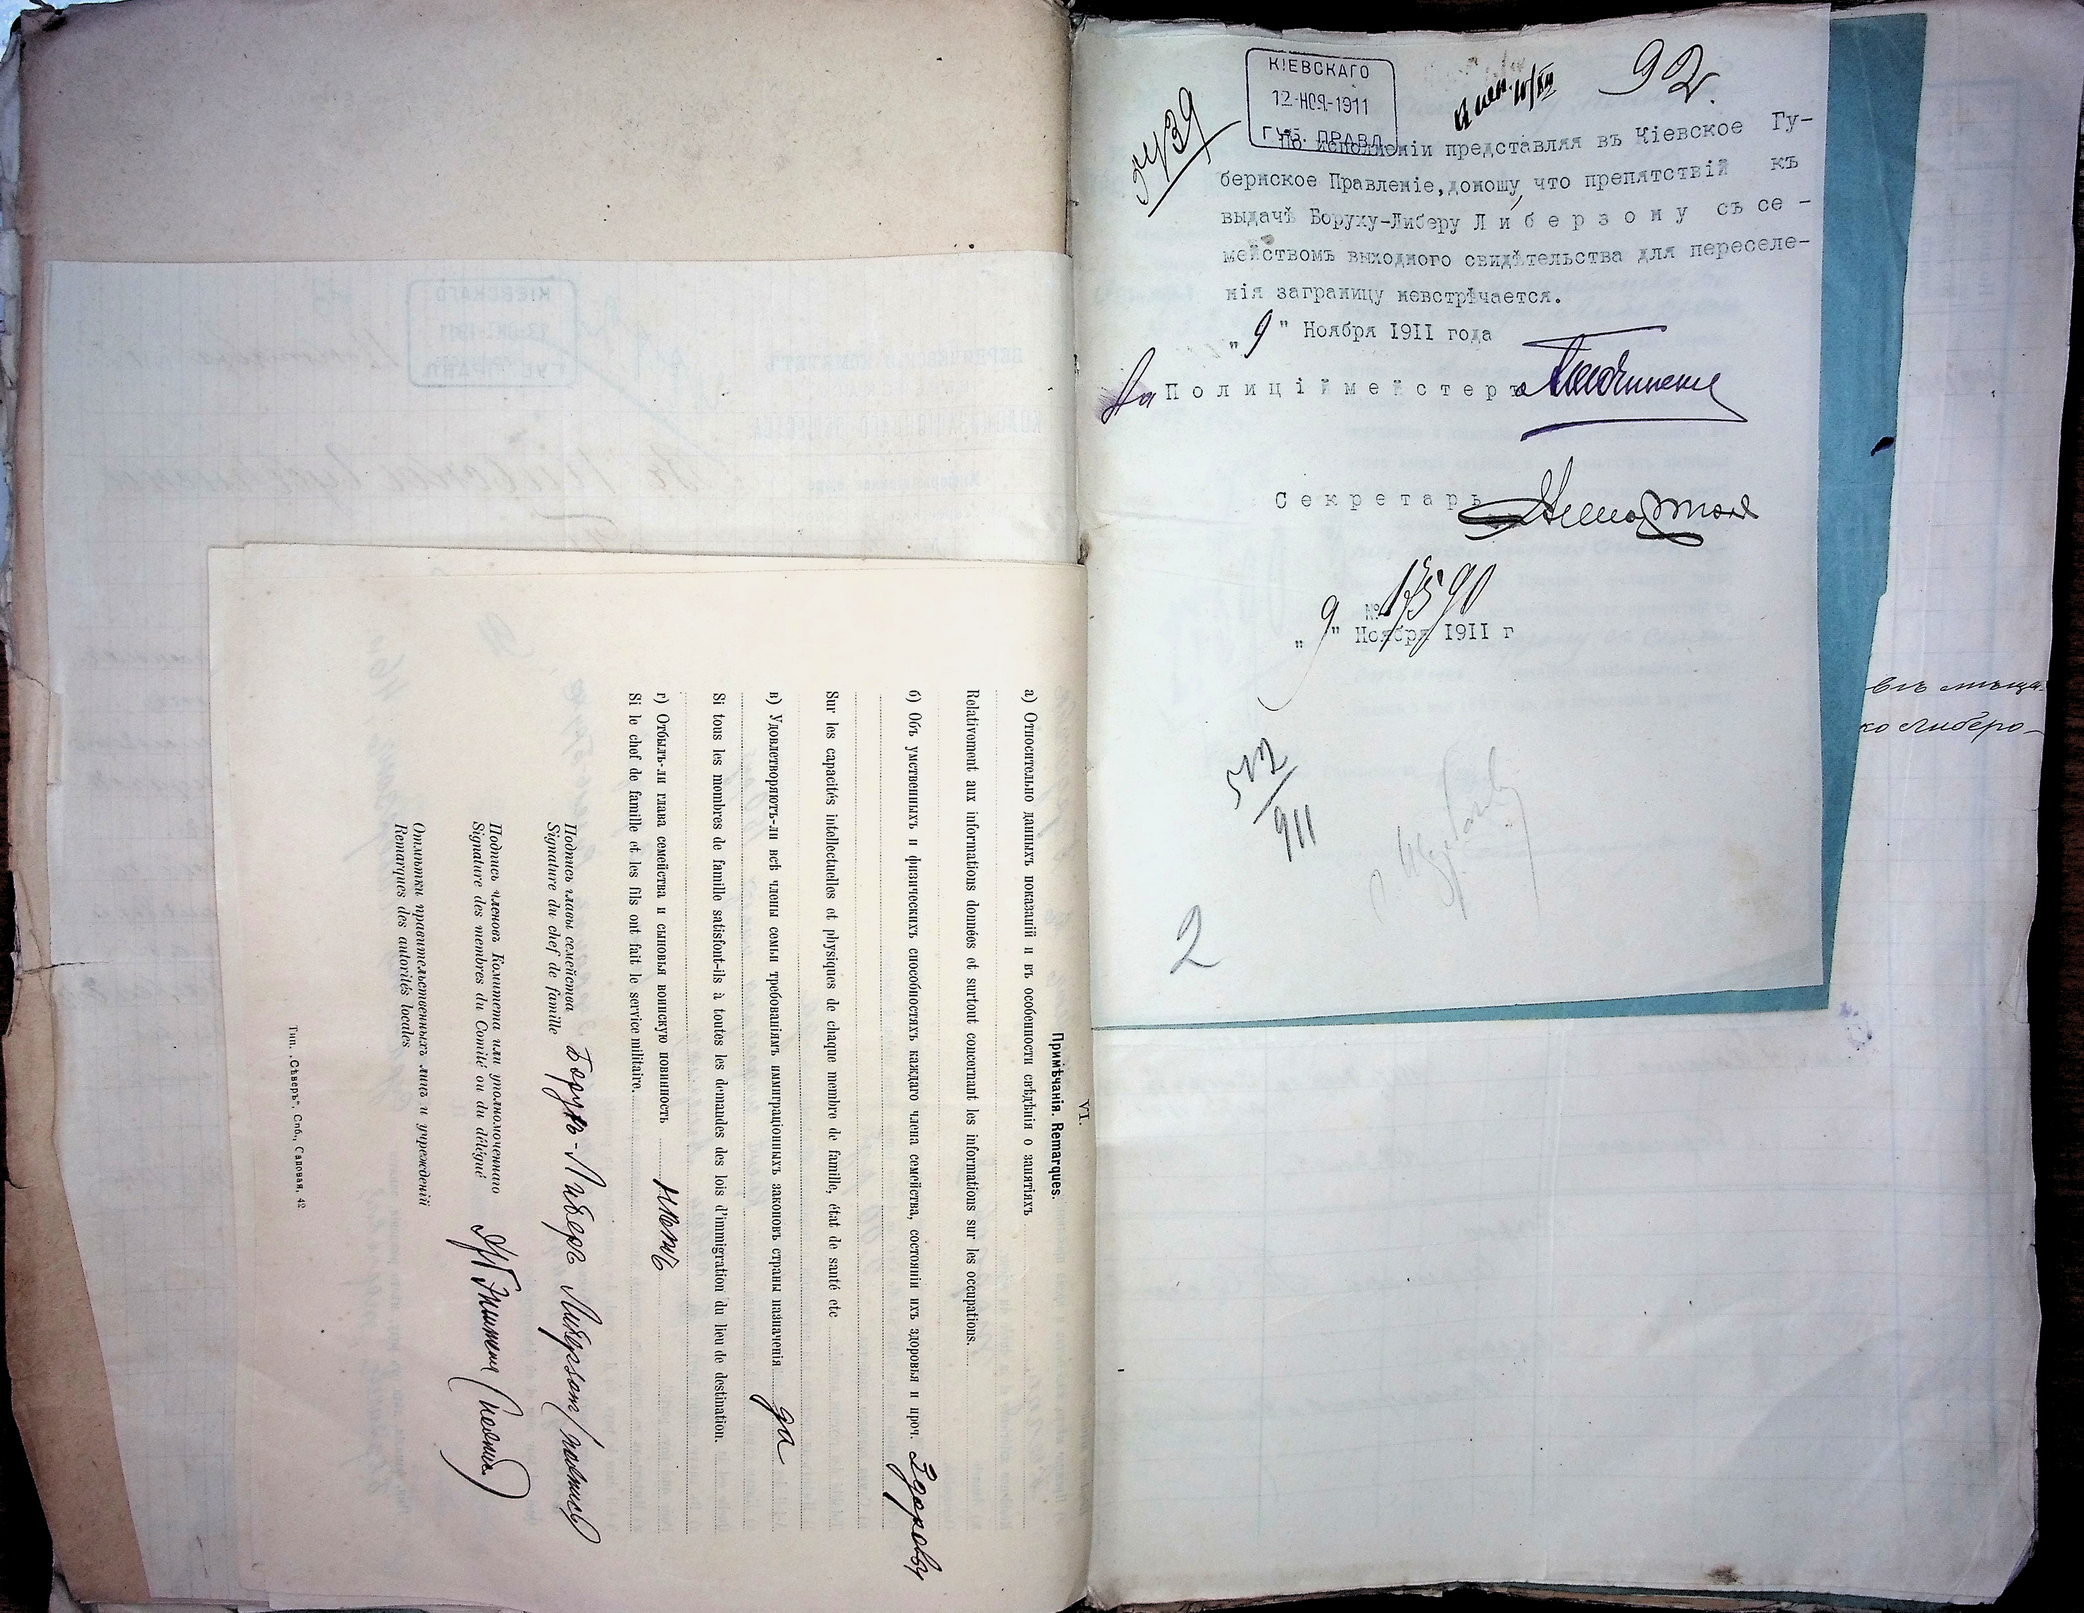 92
КІЕВСКАГО
12-НОЯ-1911
ГУБ. ПРАВЛ.
По исполненіи представляя въ Кіевское Гу-
бернское Правленіе, доношу, что препятствій къ
выдачѣ Боруху-Либеру Либерзону съ се-
мействомъ выходного свидѣтельства для переселе-
нія заграницу невстрѣчается.
„ 9 " Ноября 1911 года
За Полиціймейстера
Секретарь
№ 13590
„ 9 " Ноября 1911 г
512/911
2
въ мѣща-
ко Либеро-
VI.
Примѣчанія. Remarques.
а) Относительно данныхъ показаній и въ особенности свѣдѣнія о занятіяхъ
Relativement aux informations données et surtout concernant les informations sur les occupations.
б) Объ умственныхъ и физическихъ способностяхъ каждаго члена семейства, состояніи ихъ здоровья и проч. Здоровы
Sur les capacités intellectuelles et physiques de chaque membre de famille, état de santé etc
в) Удовлетворяютъ-ли всѣ члены семьи требованіямъ иммиграціонныхъ законовъ страны назначенія да
Si tous les membres de famille satisfont-ils à toutes les demandes des lois d'immigration du lieu de destination.
г) Отбылъ-ли глава семейства и сыновья воинскую повинность нѣтъ
Si le chef de famille et les fils ont fait le service militaire.
Подпись главы семейства Борухъ-Либеръ Либерзонъ (подпись)
Signature du chef de famille
Подпись членовъ Комитета или уполномоченнаго
Signature des membres du Comité ou du délégué
Отмѣтки правительственныхъ лицъ и учрежденій
Remarques des autorités locales
Тип. „Сѣверъ", Спб., Садовая, 42